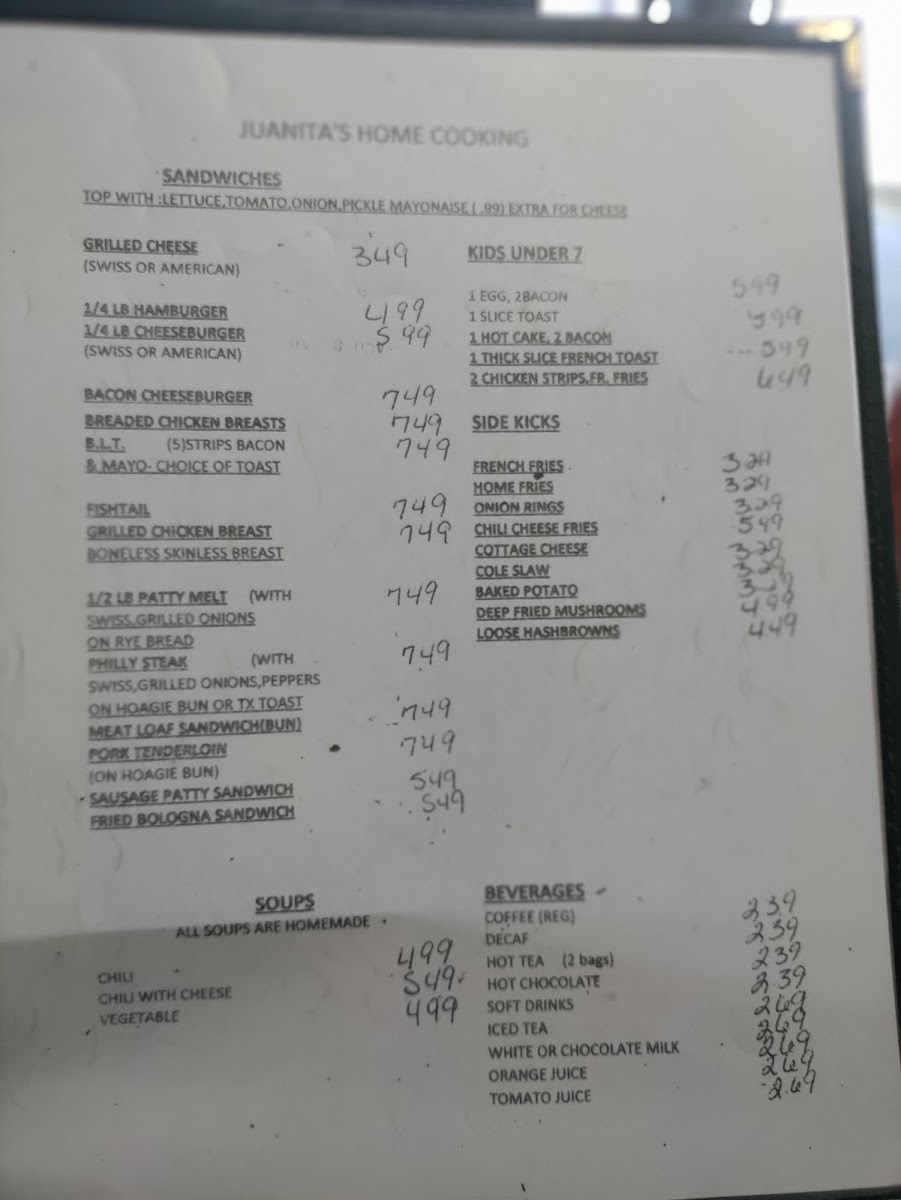 JUANITA'S HOME COOKING
SANDWICHES
TOP WITH :LETTUCE,TOMATO,ONION,PICKLE MAYONAISE ( .99) EXTRA FOR CHEESE
GRILLED CHEESE 349
(SWISS OR AMERICAN)
1/4 LB HAMBURGER 499
1/4 LB CHEESEBURGER 599
(SWISS OR AMERICAN)
BACON CHEESEBURGER 749
BREADED CHICKEN BREASTS 749
B.L.T. (5)STRIPS BACON 749
& MAYO- CHOICE OF TOAST
FISHTAIL 749
GRILLED CHICKEN BREAST 749
BONELESS SKINLESS BREAST
1/2 LB PATTY MELT (WITH 749
SWISS,GRILLED ONIONS
ON RYE BREAD
PHILLY STEAK (WITH 749
SWISS,GRILLED ONIONS,PEPPERS
ON HOAGIE BUN OR TX TOAST
MEAT LOAF SANDWICH(BUN) 749
PORK TENDERLOIN 749
(ON HOAGIE BUN)
SAUSAGE PATTY SANDWICH 549
FRIED BOLOGNA SANDWICH 549
KIDS UNDER 7
1 EGG, 2BACON 599
1 SLICE TOAST 599
1 HOT CAKE, 2 BACON
1 THICK SLICE FRENCH TOAST 599
2 CHICKEN STRIPS,FR. FRIES 649
SIDE KICKS
FRENCH FRIES 329
HOME FRIES 329
ONION RINGS 329
CHILI CHEESE FRIES 599
COTTAGE CHEESE 329
COLE SLAW 329
BAKED POTATO 329
DEEP FRIED MUSHROOMS 4.99
LOOSE HASHBROWNS 4.49
SOUPS
ALL SOUPS ARE HOMEMADE
CHILI 499
CHILI WITH CHEESE 549
VEGETABLE 499
BEVERAGES
COFFEE (REG) 239
DECAF 239
HOT TEA (2 bags) 239
HOT CHOCOLATE 2.39
SOFT DRINKS 269
ICED TEA 269
WHITE OR CHOCOLATE MILK 269
ORANGE JUICE 269
TOMATO JUICE 2.69